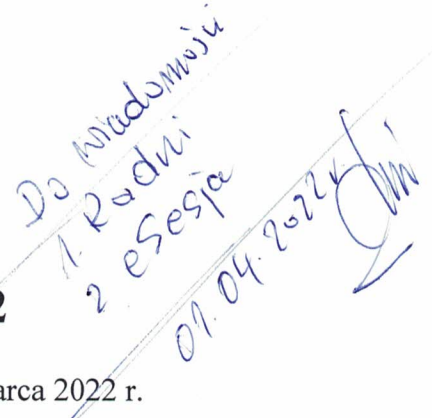 Do wiadomości
1. Radni
2 eSesja
01.04.2022r.
2
arca 2022 r.